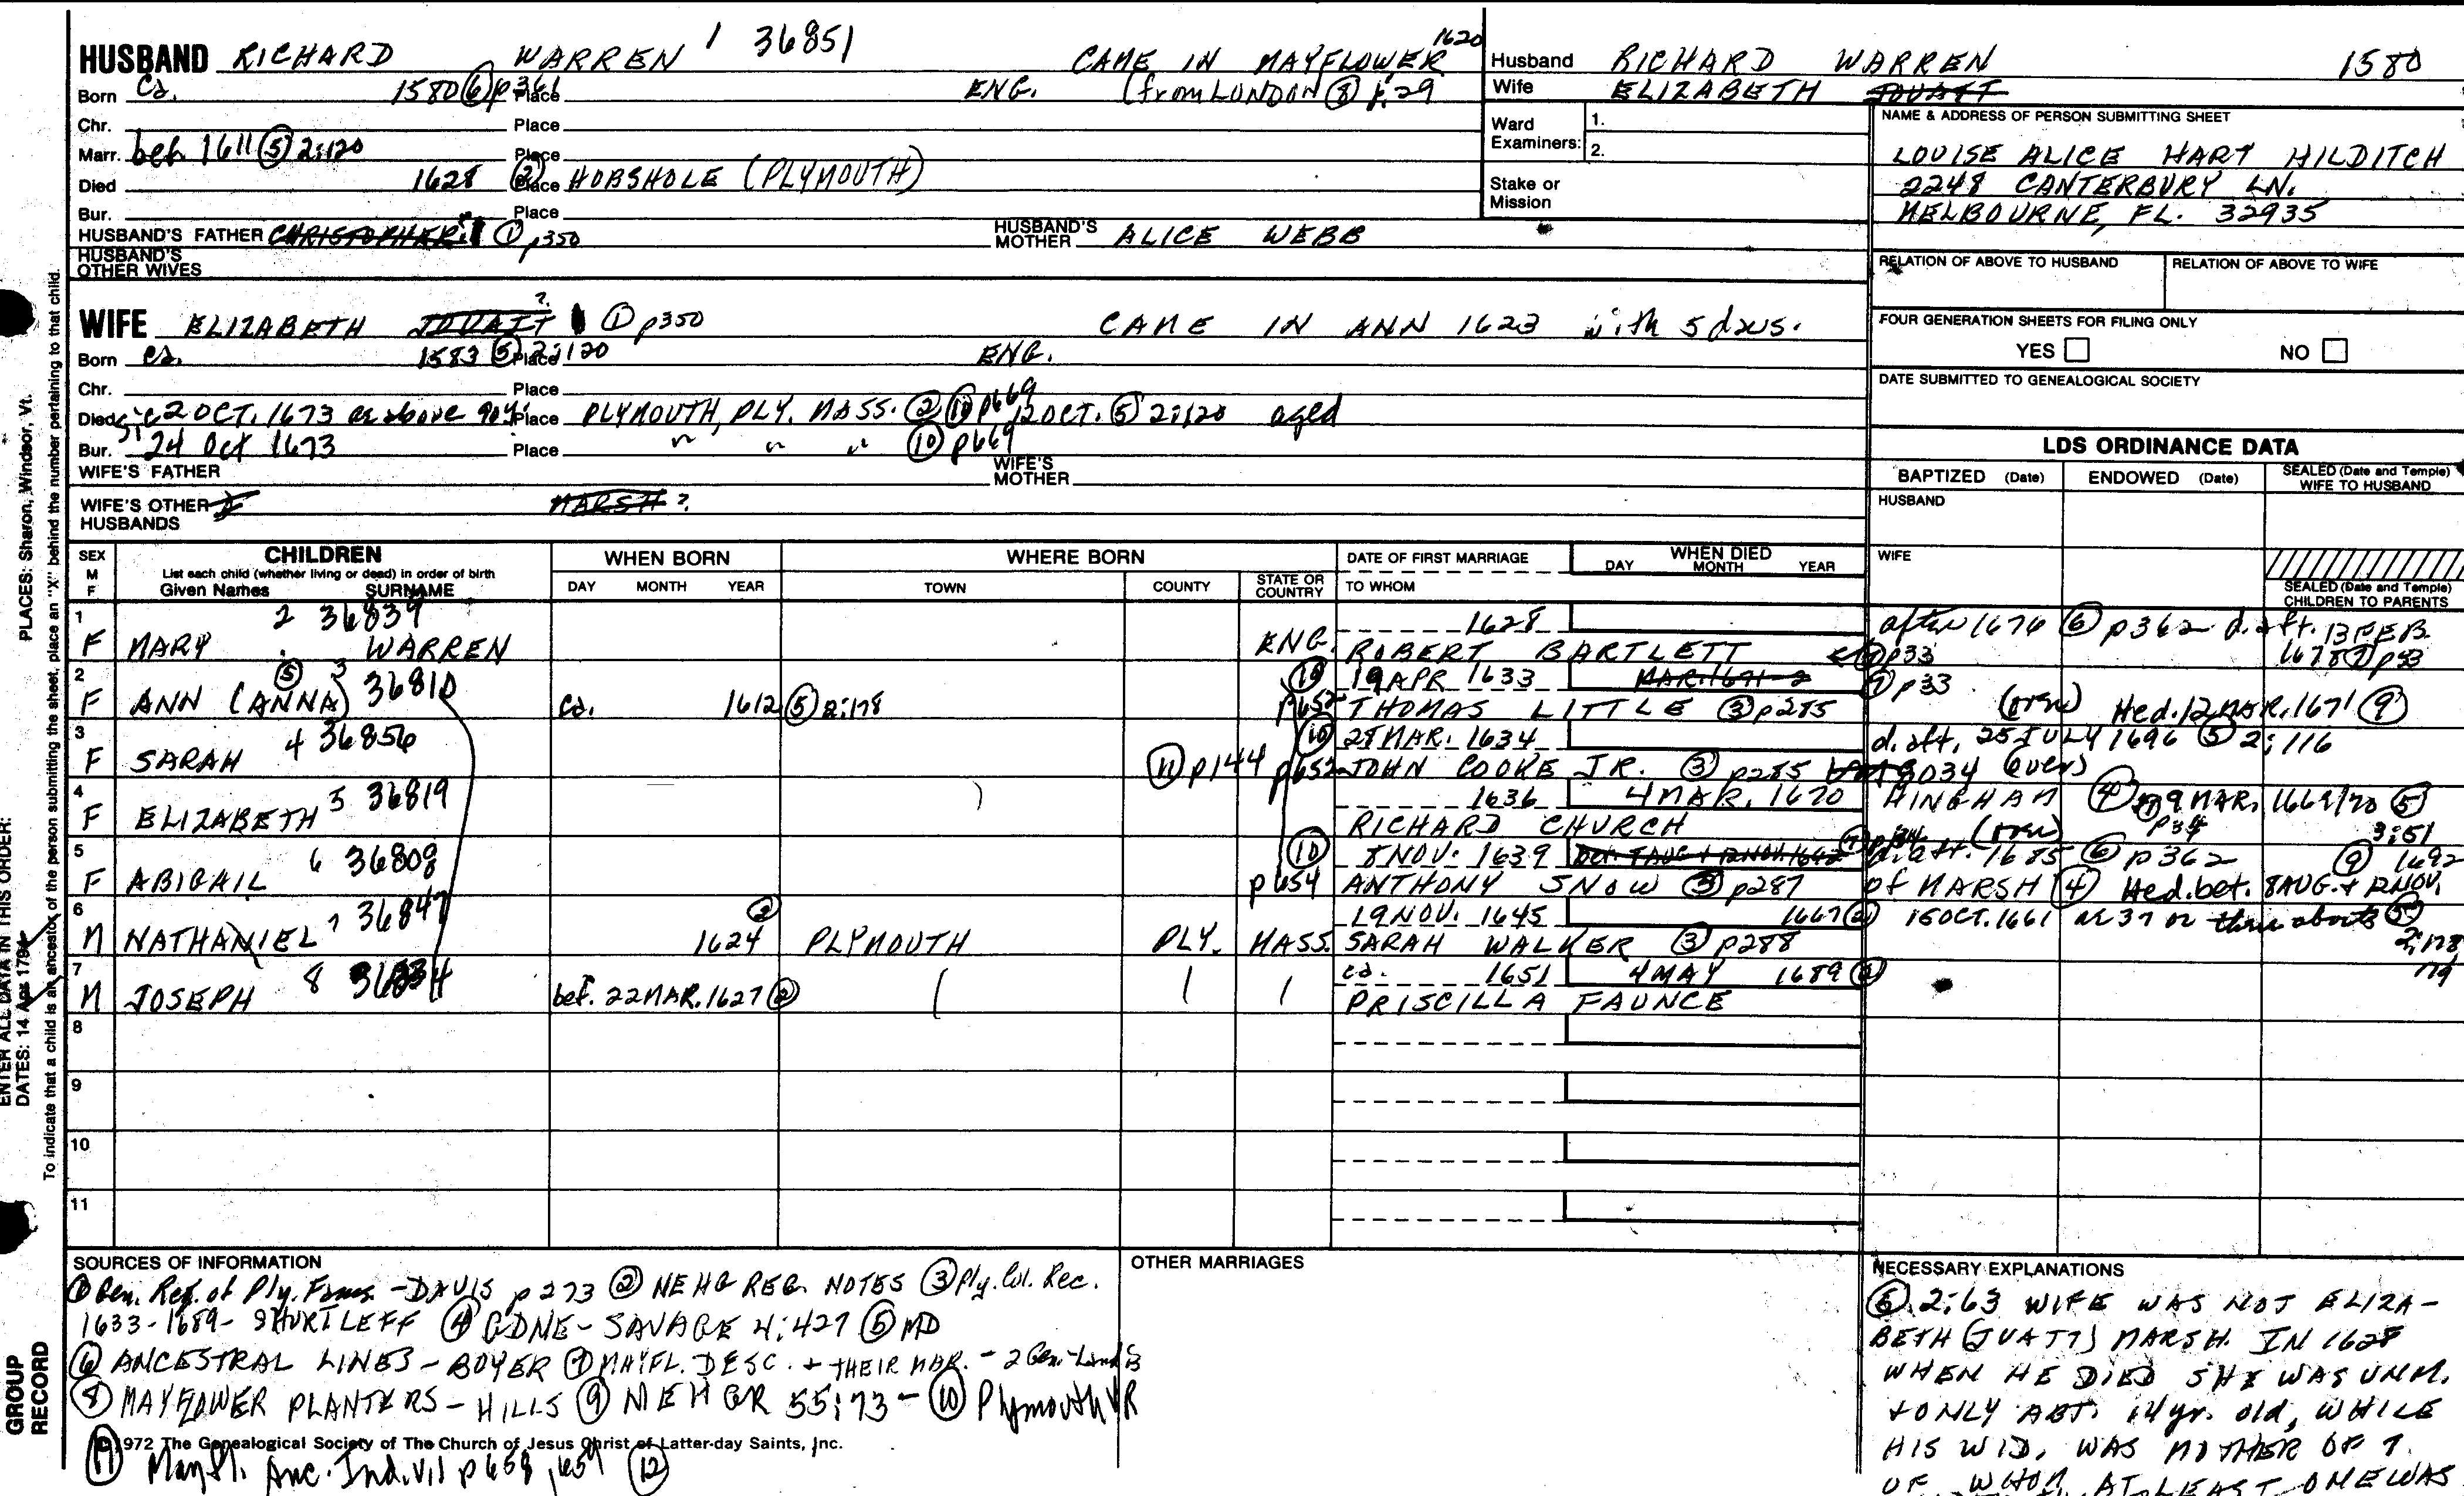 HUSBAND RICHARD WARREN 1 36851 CAME IN MAYFLOWER 1620
Born ca. 1580 ⑥ p361 Place ENG. (from LONDON ⑧ p.29
Chr. Place
Marr. bef. 1611 ⑤ 2:120 Place
Died 1628 ② Place HOBSHOLE (PLYMOUTH)
Bur. Place
HUSBAND'S FATHER CHRISTOPHER ① p350 HUSBAND'S MOTHER ALICE WEBB
HUSBAND'S OTHER WIVES
WIFE ELIZABETH JOUATT ? ① p350 CAME IN ANN 1623 with 5 daus.
Born ca. 1583 ⑤ 2:120 Place ENG.
Chr. Place
Died sic 2 OCT. 1673 ae above 90 y. Place PLYMOUTH, PLY. MASS. ② ⑩ p669 2 OCT. ⑤ 2:120 aged
Bur. 24 Oct 1673 Place " " " ⑩ p669
WIFE'S FATHER WIFE'S MOTHER
WIFE'S OTHER HUSBANDS MARSH ?
Husband RICHARD WARREN 1580
Wife ELIZABETH JOUATT
Ward Examiners: 1.
2.
Stake or Mission
NAME & ADDRESS OF PERSON SUBMITTING SHEET
LOUISE ALICE HART HILDITCH
2248 CANTERBURY LN.
MELBOURNE, FL. 32935
RELATION OF ABOVE TO HUSBAND RELATION OF ABOVE TO WIFE
FOUR GENERATION SHEETS FOR FILING ONLY
YES NO
DATE SUBMITTED TO GENEALOGICAL SOCIETY
LDS ORDINANCE DATA
BAPTIZED (Date) ENDOWED (Date) SEALED (Date and Temple) WIFE TO HUSBAND
HUSBAND
WIFE
SEALED (Date and Temple) CHILDREN TO PARENTS
SEX M F CHILDREN WHEN BORN WHERE BORN DATE OF FIRST MARRIAGE WHEN DIED
List each child (whether living or dead) in order of birth DAY MONTH YEAR
Given Names SURNAME DAY MONTH YEAR TOWN COUNTY STATE OR COUNTRY TO WHOM
1 2 36839 1628 after 1676 ⑥ p362 d. aft. 13 FEB.
F MARY WARREN ENG. ROBERT BARTLETT ⑦ p33 1678 ⑦ p33
2 ⑤ 3 36810 ⑩ 19 APR 1633 MAR. 1671-2 ⑦ p33
F ANN (ANNA) ca. 1612 ⑤ 2:178 p652 THOMAS LITTLE ③ p285 (over) Hed. 12 MAR. 1671 ⑨
3 4 36856 ⑩ 28 MAR. 1634 d. aft. 25 JULY 1696 ⑤ 2:116
F SARAH ⑪ p144 p652 JOHN COOKE JR. ③ p285 (over)
4 5 36819 1636 4 MAR. 1670 HINGHAM ④ ⑦ 9 MAR. 1669/70 ⑤
F ELIZABETH RICHARD CHURCH p34 (over) 3:51
5 6 36808 ⑩ 8 NOV. 1639 d. aft. 1685 ⑥ p362 ⑨ 1692
F ABIGAIL p654 ANTHONY SNOW ③ p287 of MARSH ④ Hed. bet. 8 AUG. + 12 NOV.
6 7 36847 ② 19 NOV. 1645 1667 ② 15 OCT. 1661 ae 37 or there abouts ⑤
M NATHANIEL 1624 PLYMOUTH PLY. MASS. SARAH WALKER ③ p288 2:178,
179
7 8 36834 ca. 1651 4 MAY 1689 ②
M JOSEPH bef. 22 MAR. 1627 ② PRISCILLA FAUNCE
8
9
10
11
SOURCES OF INFORMATION
① Gen. Reg. of Ply. Fams. - DAVIS p 273 ② NEHG REG. NOTES ③ Ply. Col. Rec.
1633-1689 - SHURTLEFF ④ GDNE - SAVAGE 4:427 ⑤ MD
⑥ ANCESTRAL LINES - BOYER ⑦ MAYFL. DESC. + THEIR MAR. - 2 Gen. - Landis
⑧ MAYFLOWER PLANTERS - HILLS ⑨ NEHGR 55:73 - ⑩ Plymouth VR
1972 The Genealogical Society of The Church of Jesus Christ of Latter-day Saints, Inc.
⑪ Mayfl. Anc. Ind. V11 p658, 659 ⑫
OTHER MARRIAGES
NECESSARY EXPLANATIONS
⑤ 2:63 WIFE WAS NOT ELIZA-
BETH (JUATT) MARSH. IN 1628
WHEN HE DIED SHE WAS UNM.
+ ONLY ABT. 14 yr. old, WHILE
HIS WID. WAS MOTHER OF 7
OF WHOM AT LEAST ONE WAS
PLACES: Sharon, Windsor, Vt.
ENTER ALL DATA IN THIS ORDER:
DATES: 14 Apr 1794
To indicate that a child is an ancestor of the person submitting the sheet, place an "X" behind the number pertaining to that child.
GROUP
RECORD